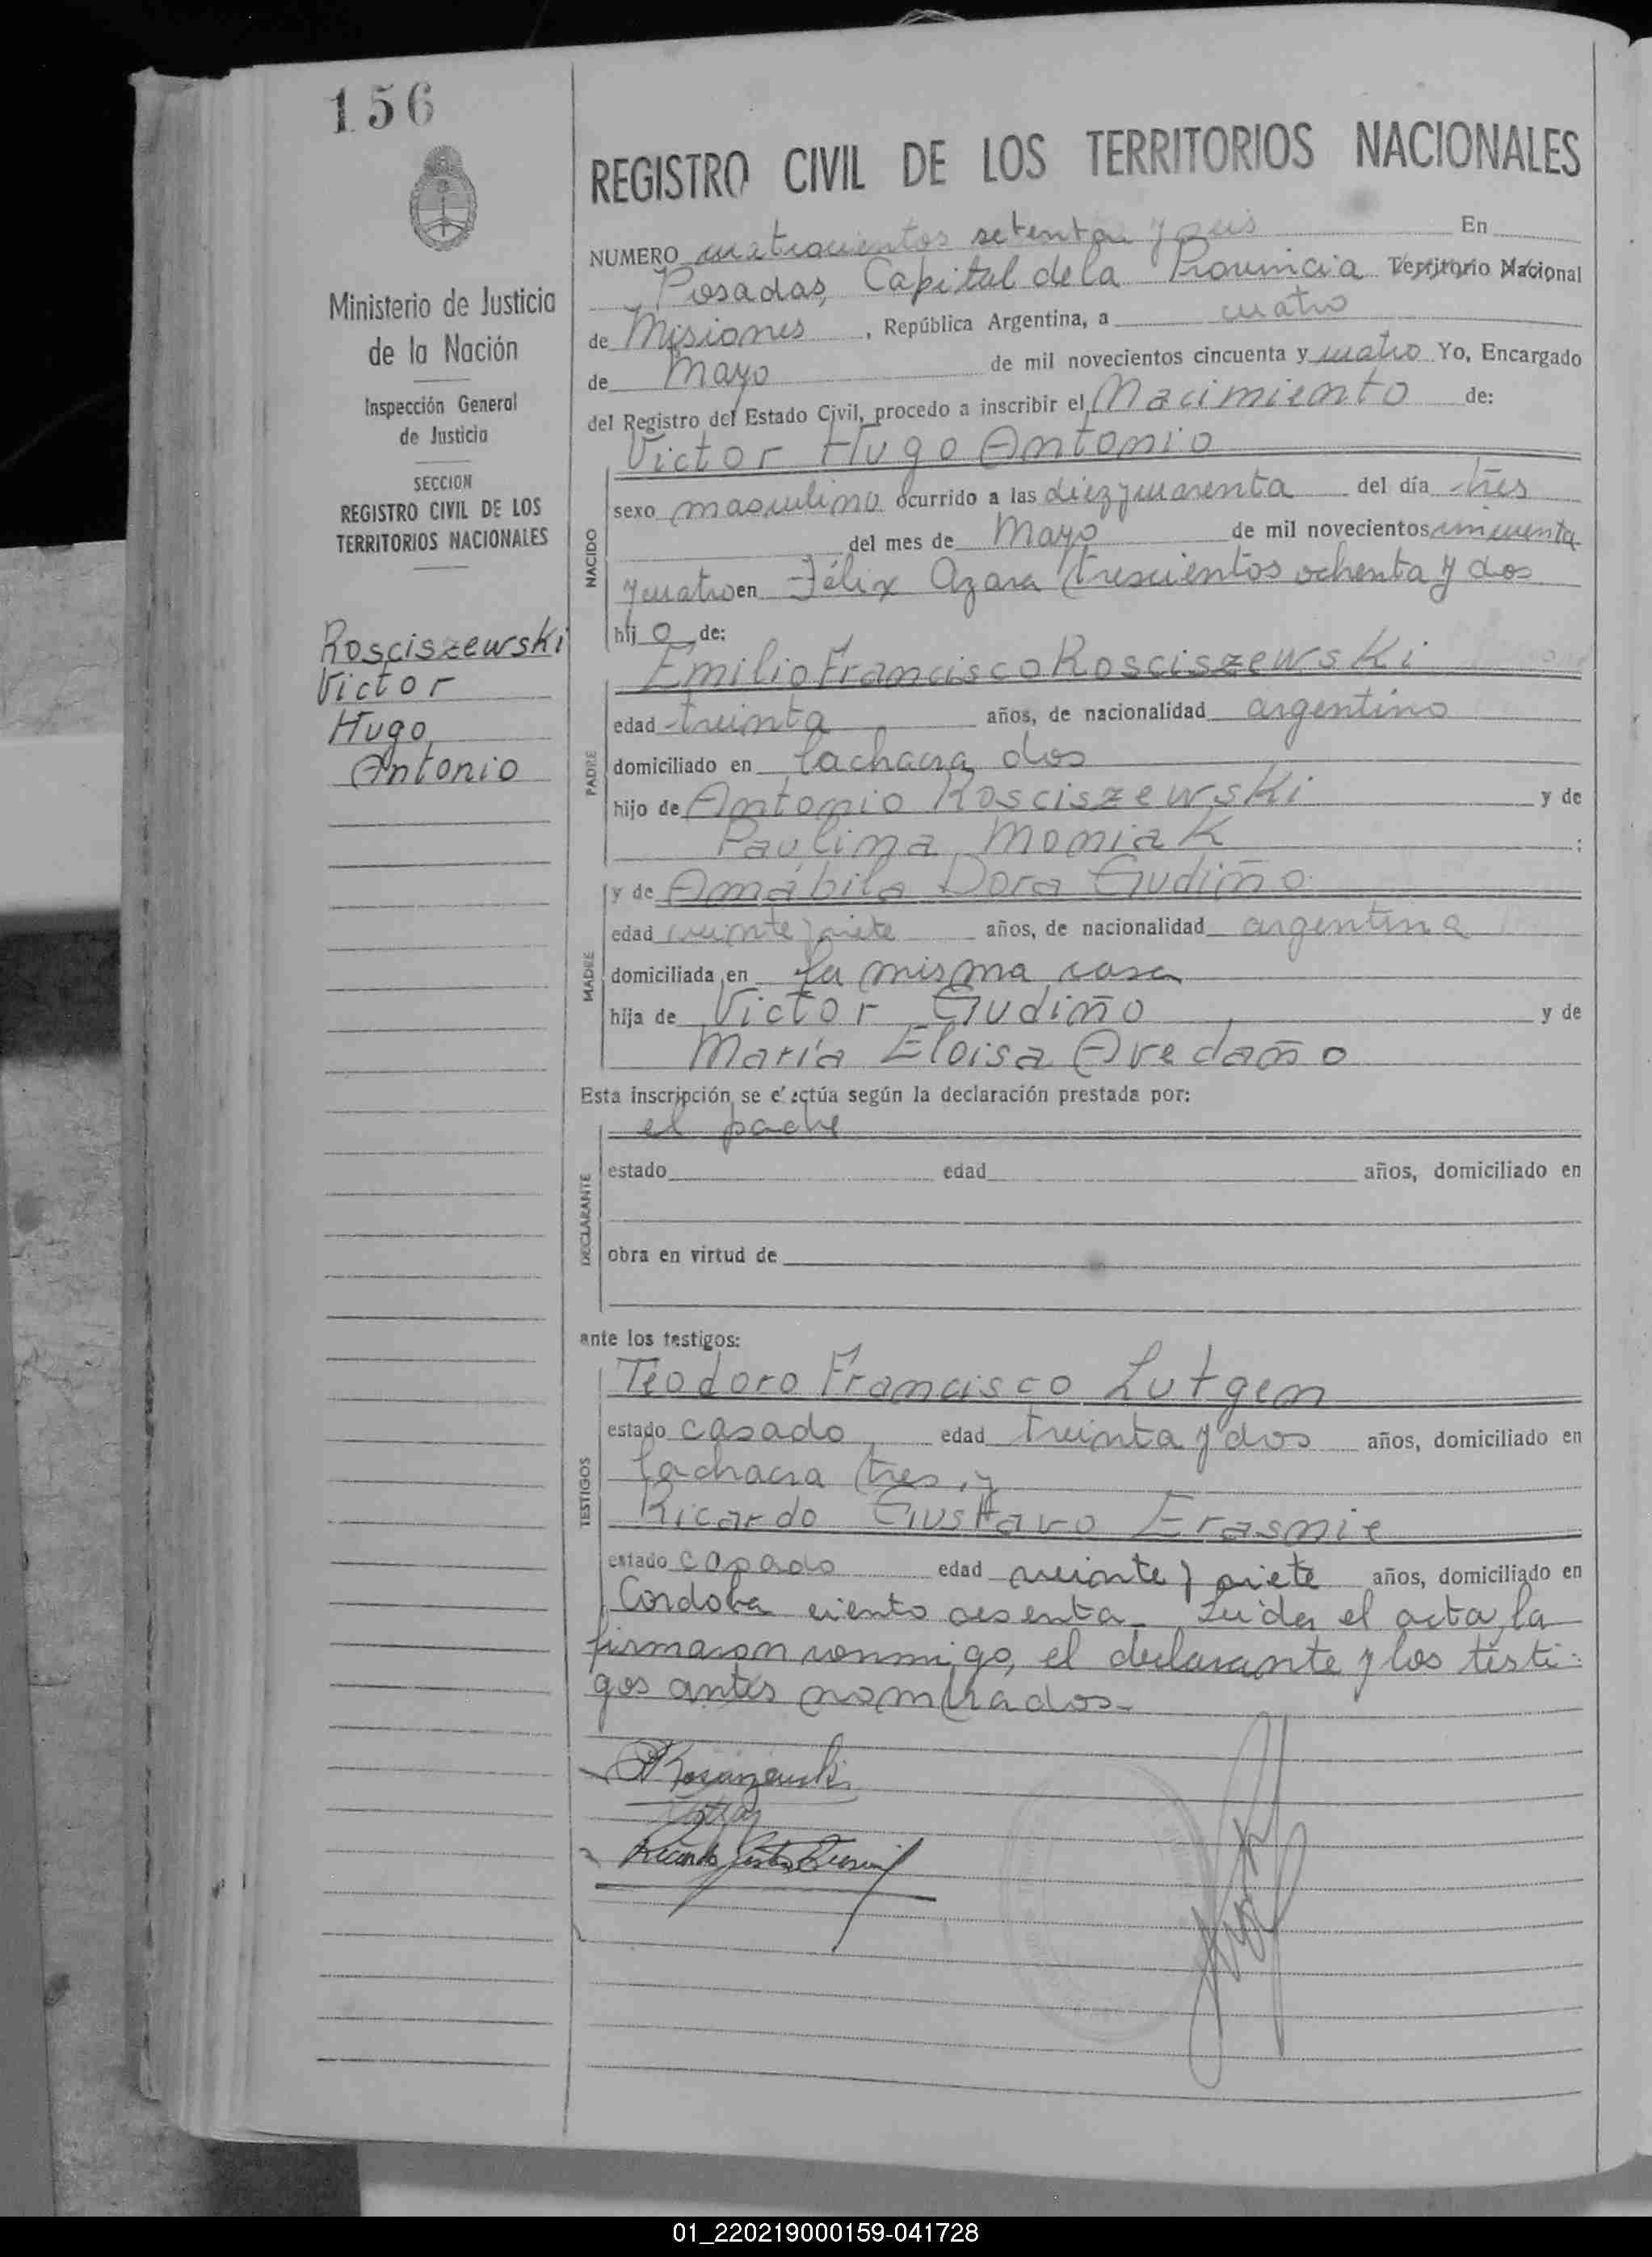 156
REGISTRO CIVIL DE LOS TERRITORIOS NACIONALES
NUMERO cuatrocientos setenta y seis En
Posadas, Capital de la Provincia Territorio Nacional
de Misiones, República Argentina, a cuatro
de Mayo de mil novecientos cincuenta y cuatro Yo, Encargado
del Registro del Estado Civil, procedo a inscribir el Nacimiento de:
Victor Hugo Antonio
NACIDO
sexo masculino ocurrido a las diez y cuarenta del día tres
del mes de Mayo de mil novecientos cincuenta
y cuatro en Félix Azara trescientos ochenta y dos
hijo de:
Emilio Francisco Rosciszewski
PADRE
edad treinta años, de nacionalidad argentino
domiciliado en la chacra dos
hijo de Antonio Rosciszewski y de
Paulina Moniak ;
y de Amábila Dora Gudiño
MADRE
edad veinte y siete años, de nacionalidad argentina
domiciliada en la misma casa
hija de Victor Gudiño y de
María Eloisa Avedaño
Esta inscripción se efectúa según la declaración prestada por:
el padre
DECLARANTE
estado edad años, domiciliado en
obra en virtud de
ante los testigos:
Teodoro Francisco Lutgen
TESTIGOS
estado casado edad treinta y dos años, domiciliado en
la chacra tres, y
Ricardo Gustavo Erasmie
estado casado edad veinte y siete años, domiciliado en
Cordoba ciento sesenta. Leida el acta, la
firmaron conmigo, el declarante y los testi-
gos antes nombrados.-
Ministerio de Justicia
de la Nación
Inspección General
de Justicia
SECCION
REGISTRO CIVIL DE LOS
TERRITORIOS NACIONALES
Rosciszewski
Victor
Hugo
Antonio
01_220219000159-041728